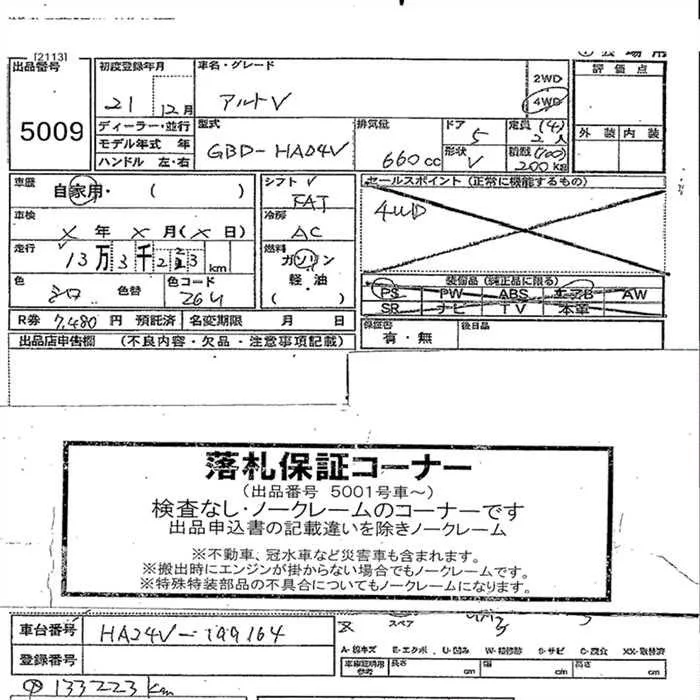 [2113]
出品番号
5009
初度登録年月
21
12月
ディーラー・並行
モデル年式 年
ハンドル 左・右
車名・グレード
アルトV
2WD
4WD
型式
GBD-HA24V
排気量
660cc
ドア
5
形状
V
定員 (4)
2人
積載 (100)
200kg
評価点
外装 内装
車歴
自家用・( )
車検
× 年 × 月(× 日)
走行
13万3千223km
色
シロ
色替
色コード
26U
シフト
FAT
冷房
AC
燃料
ガソリン
軽・油
( )
セールスポイント(正常に機能するもの)
4WD
装備品(純正品に限る)
PS PW ABS エアB AW
SR ナビ TV 本革
R券 7,480円 預託済 名変期限 月 日
保証書
有・無
後日品
出品店申告欄 (不良内容・欠品・注意事項記載)
落札保証コーナー
(出品番号 5001号車～)
検査なし・ノークレームのコーナーです
出品申込書の記載違いを除きノークレーム
※不動車、冠水車など災害車も含まれます。
※搬出時にエンジンが掛からない場合でもノークレームです。
※特殊特装部品の不具合についてもノークレームになります。
車台番号
HA24V-199164
スペア
登録番号
A-線キズ E-エクボ U-凹み W-補修跡 S-サビ C-腐食 XX-取替済
車庫証明用
参考
長さ cm
幅 cm
高さ cm
133223km